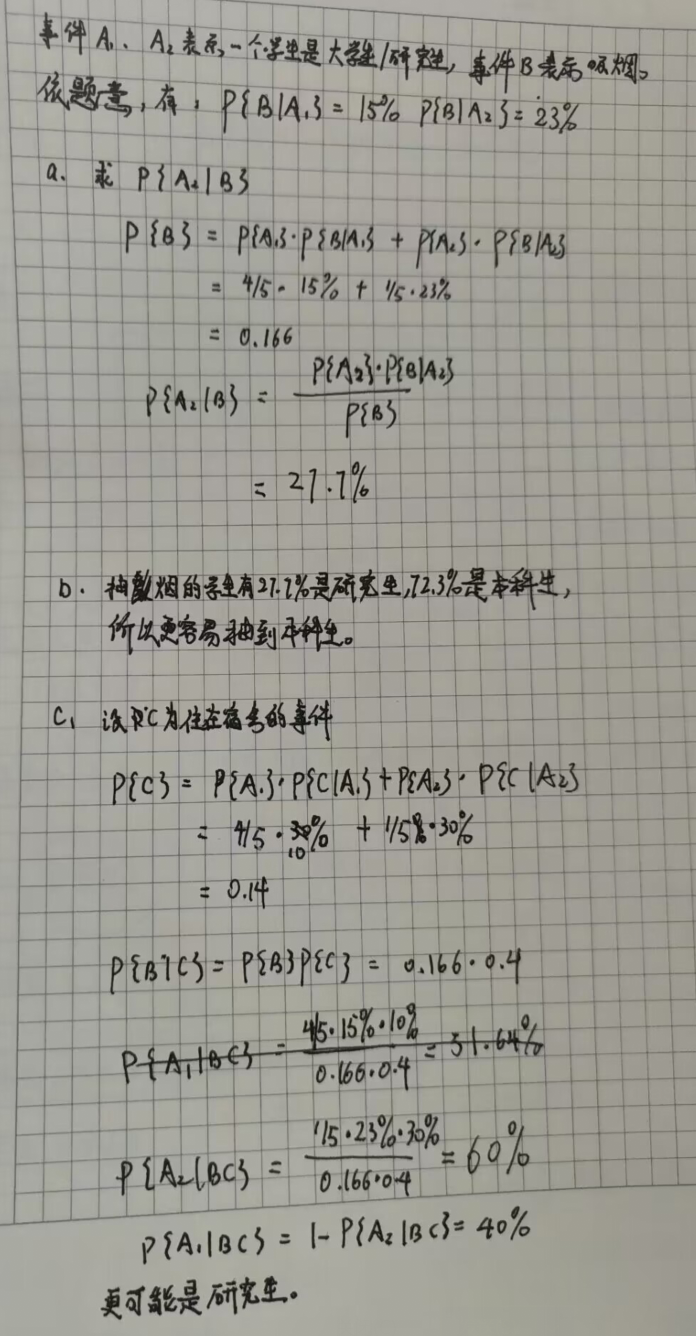 事件A₁、A₂表示一个学生是大学生/研究生, 事件B表示吸烟。
依题意, 有, P{B|A₁} = 15% P{B|A₂} = 23%
a. 求 P{A₂|B}
P{B} = P{A₁}·P{B|A₁} + P{A₂}·P{B|A₂}
= 4/5·15% + 1/5·23%
= 0.166
P{A₂|B} = P{A₂}·P{B|A₂} / P{B}
= 27.7%
b. 抽烟的学生有27.7%是研究生,72.3%是本科生,
所以更容易抽到本科生。
C, 设C为住在宿舍的事件
P{C} = P{A₁}·P{C|A₁} + P{A₂}·P{C|A₂}
= 4/5·10% + 1/5·30%
= 0.14
P{BC} = P{B}P{C} = 0.166·0.4
P{A₁|BC} = 4/5·15%·10% / 0.166·0.4 = 51.64%
P{A₂|BC} = 1/5·23%·30% / 0.166·0.4 = 60%
P{A₁|BC} = 1-P{A₂|BC} = 40%
更可能是研究生。